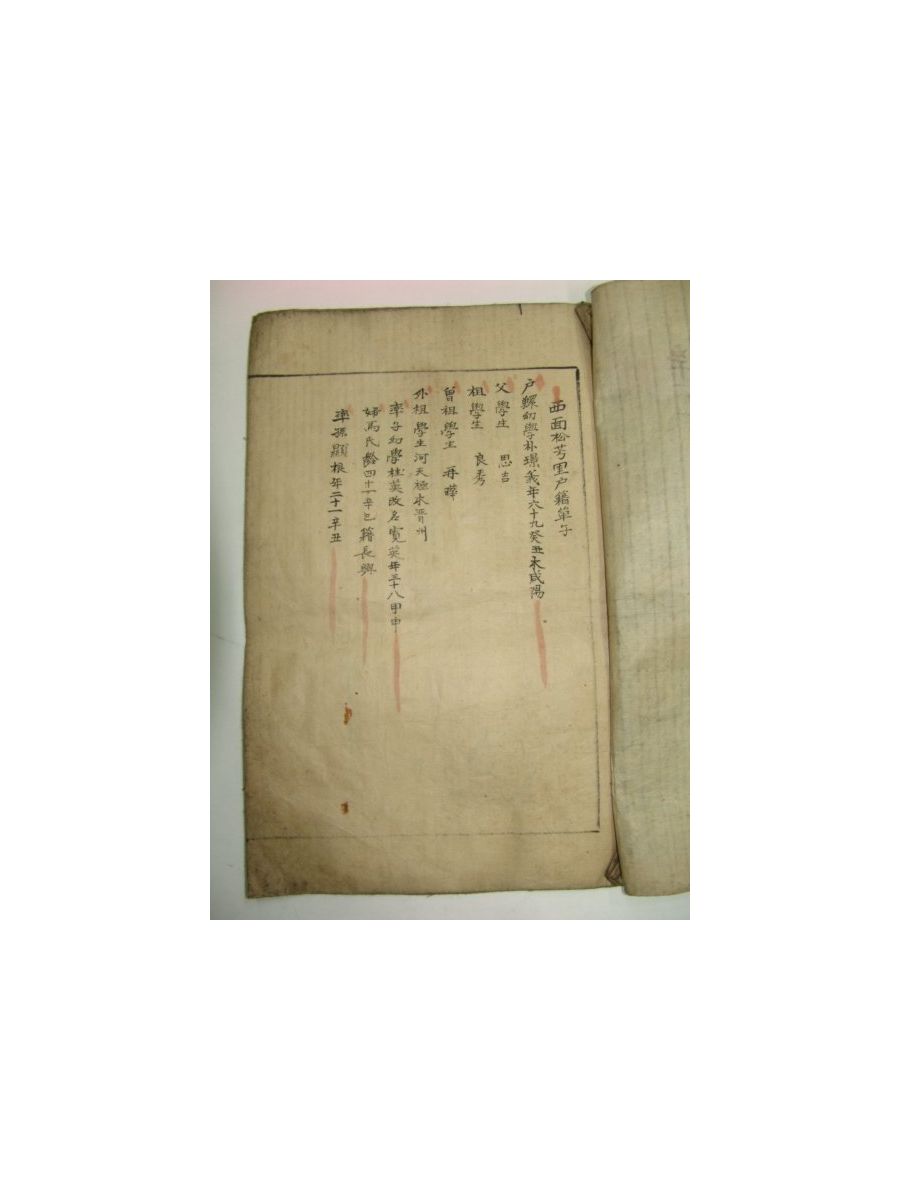 西面松芳里户籍單子
户鰥幼學朴璟義年六十九癸丑本咸陽
父學生 思吉
祖學生 良秀
曾祖學生 再曄
外祖學生河天極本晋州
率子幼學桂英改名寛英年三十八甲申
婦馬氏齡四十一辛巳籍長興
率孫顯根年二十一辛丑